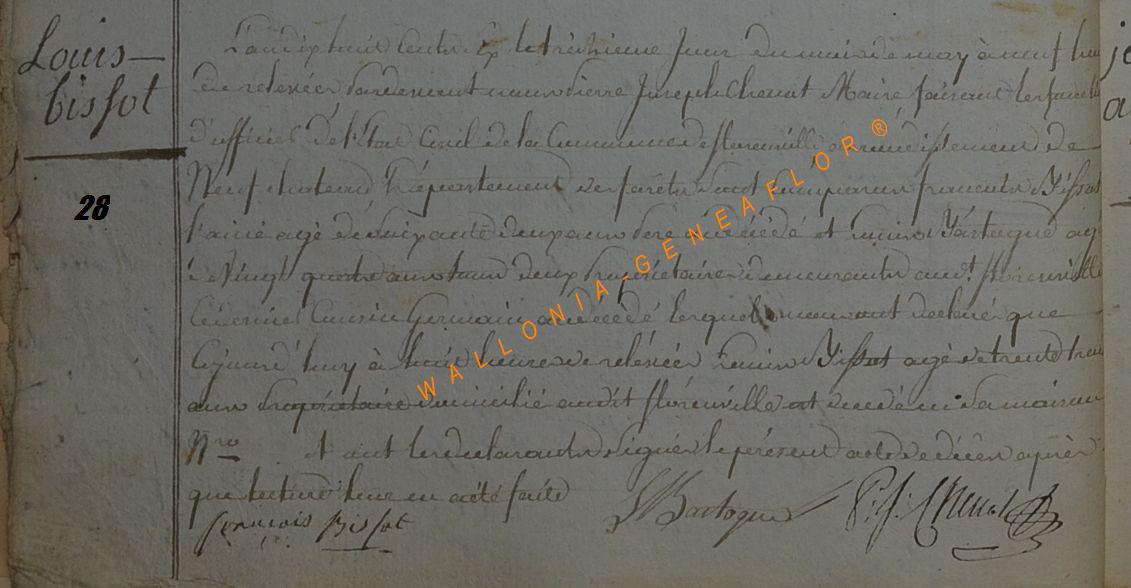 Louis
bissot
28
L'an dix huit cents dix le treizieme jour du mois de may à neuf heu
de relevée pardevant nous pierre Joseph Chenot Maire faisant les fonct
d'officier de l'Etat Civil de la Commune de florenville arrondissement de
Neufchateau Département des forêts sont comparus francois Bissot
l'ainé agé de soixante deux ans pere du décédé et Louis Bartogue ag
de Vingt quatre ans tous deux propriétaires demeurants audt florenville
Ce dernier Cousin Germain au décédé lesquels nous ont declaré que
Cejourd'huy à huit heures de relevée Louis Bissot agé de trente trois
ans propriétaire domicilié audit florenville est decedé en sa maison
Nro et ont les declarants signés le présent acte de décés après
que lecture leur en a été faite
françois Bissot
L Bartogue
P. J. Chenot
WALLONIA-GENEAFLOR ®